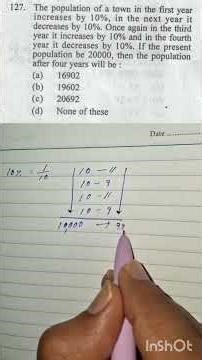 127. The population of a town in the first year
increases by 10%, in the next year it
decreases by 10%. Once again in the third
year it increases by 10% and in the fourth
year it decreases by 10%. If the present
population be 20000, then the population
after four years will be :
(a) 16902
(b) 19602
(c) 20692
(d) None of these
Date
10% = 1/10
10 - 11
10 - 9
10 - 11
10 - 9
10000 → 99
InShOt